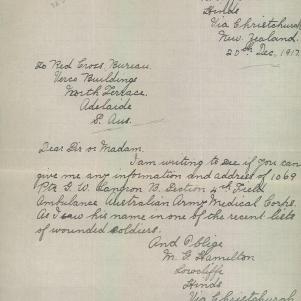 Hinds
Via Christchurch
New Zealand.
20th Dec. 1917
To Red Cross Bureau.
Verco Buildings
North Terrace.
Adelaide
S. Aus.
Dear Sir or Madam.
I am writing to see if you can
give me any information and address of 1069
Pte G. W. Cameron B. Section 4th Field
Ambulance Australian Army Medical Corps.
As I saw his name in one of the recent lists
of wounded soldiers.
And Oblige
M. G. Hamilton
Lowcliffe
Hinds
Via Christchurch